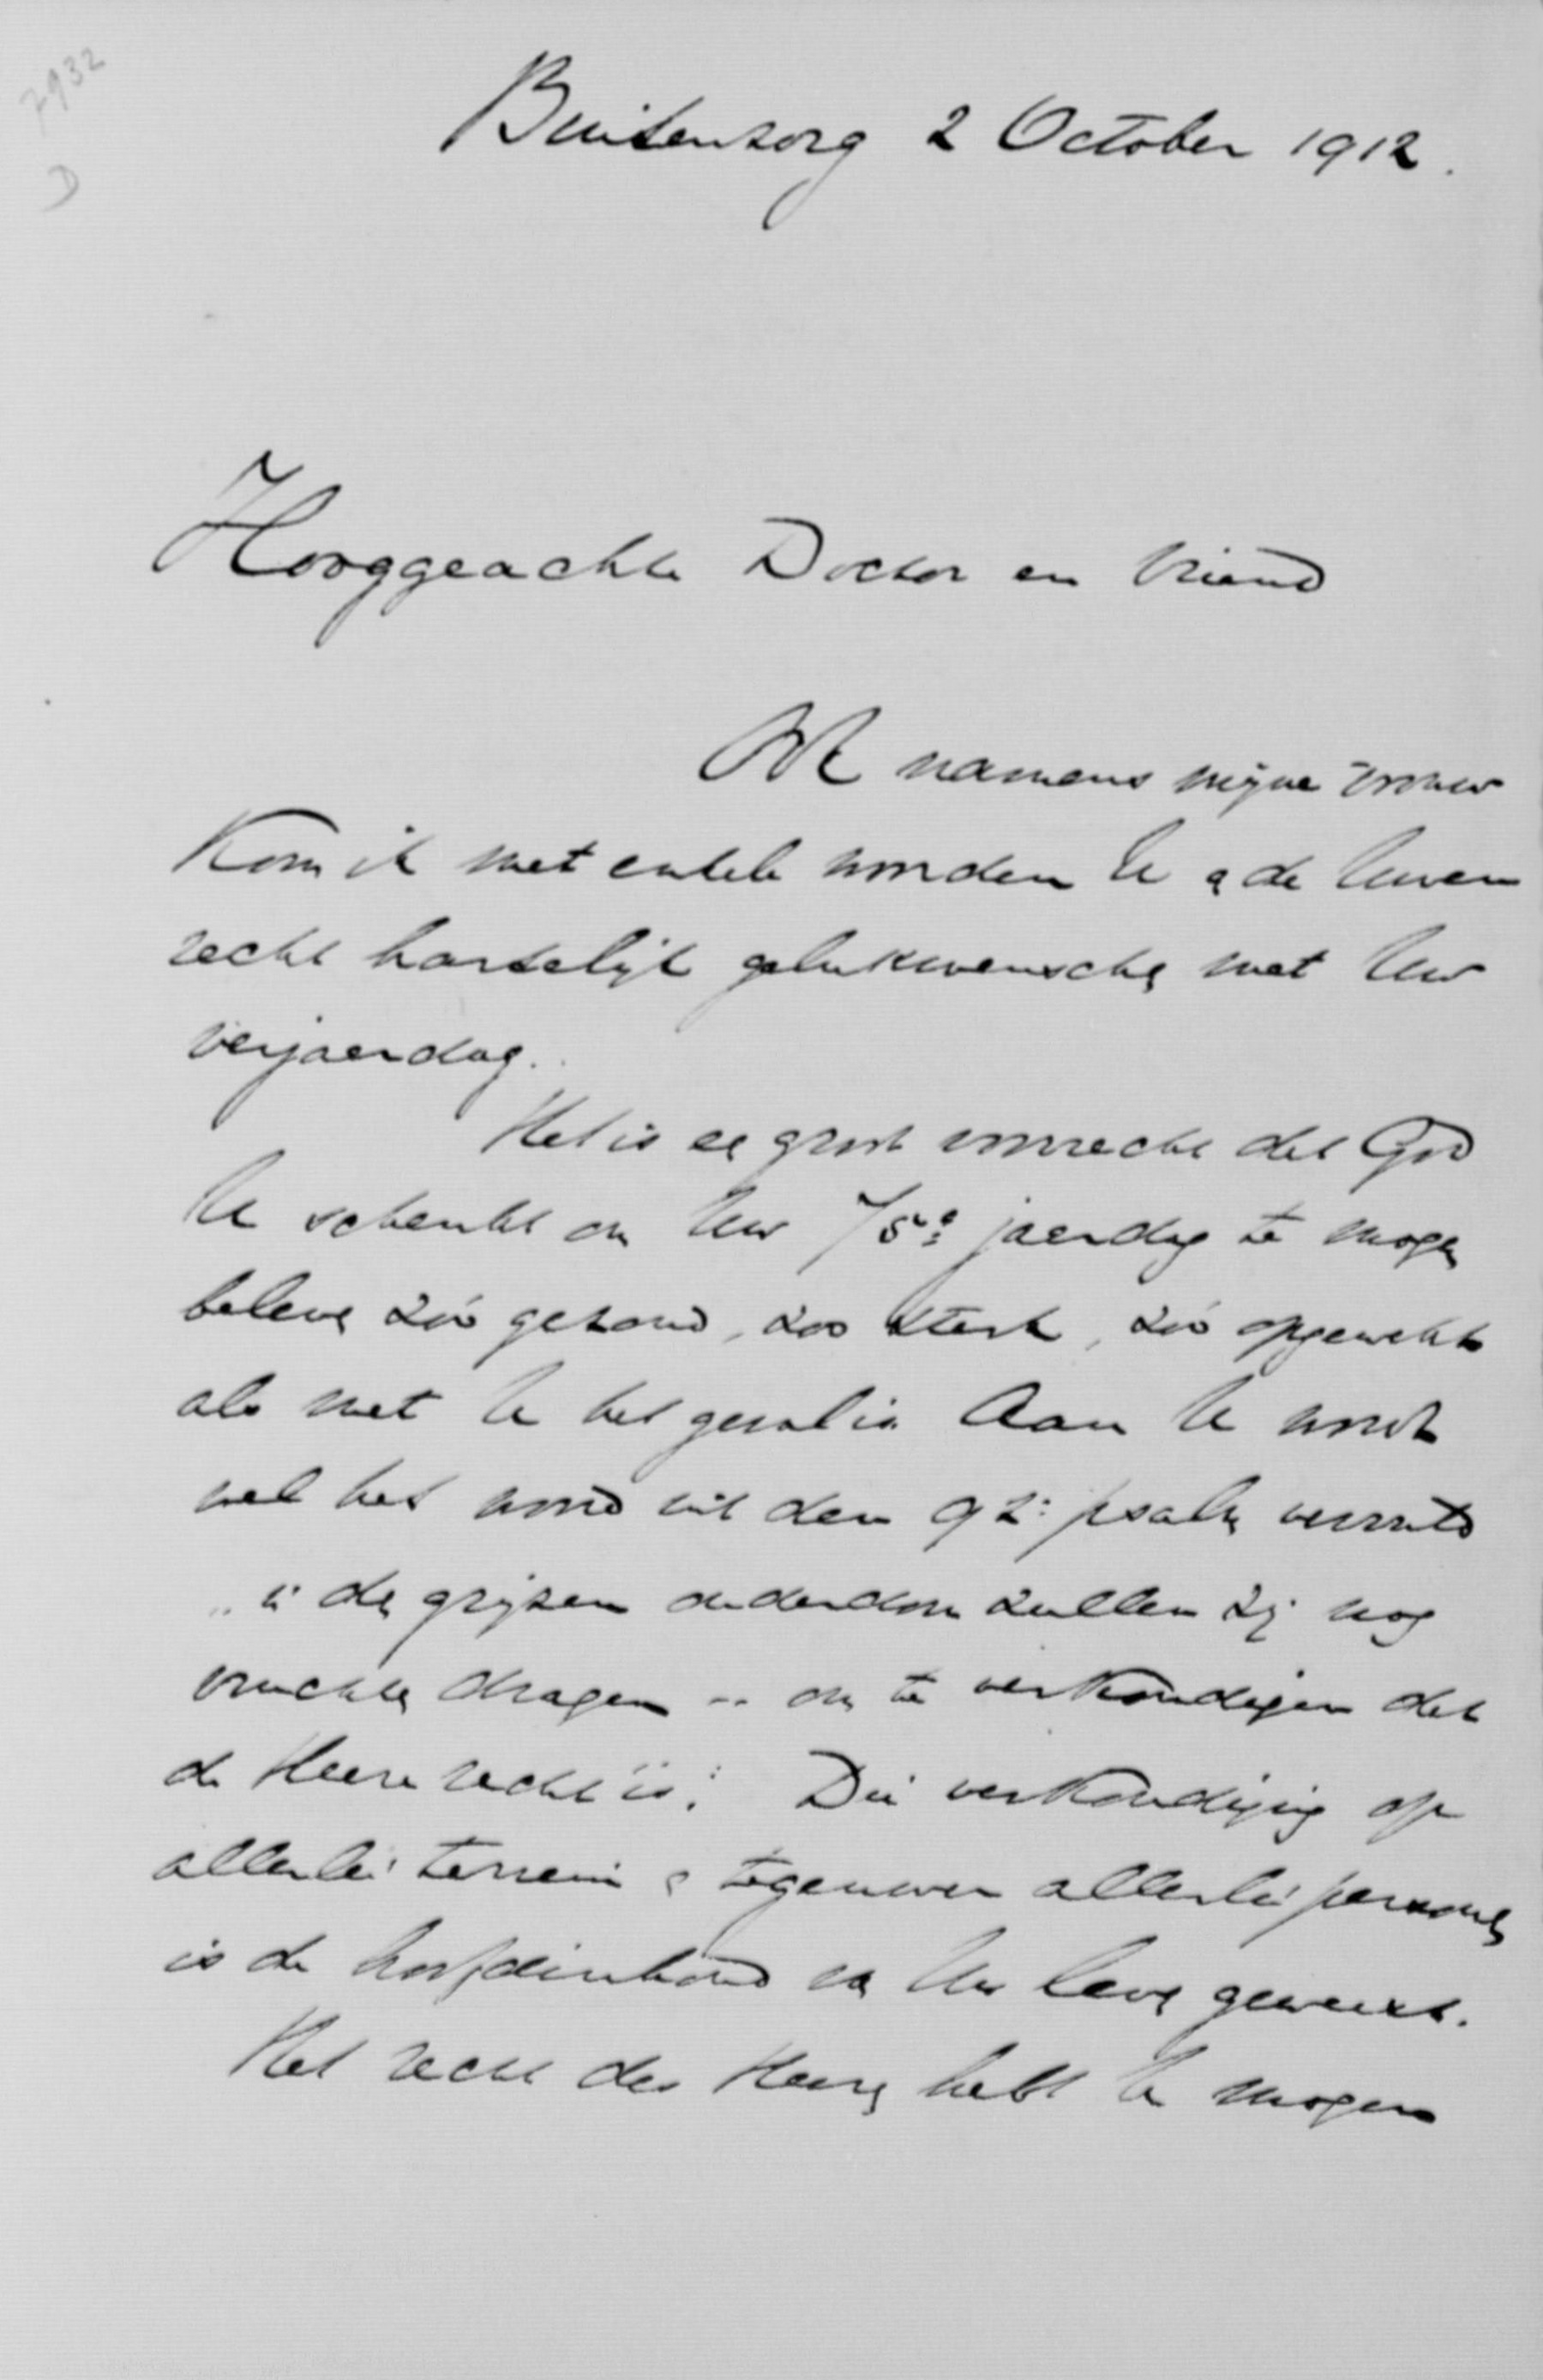 7932
D
Buitenzorg 2 October 1912.
Hooggeachte Doctor en Vriend
Ook namens mijne vrouw
kom ik met enkele woorden U en de Uwen
recht hartelijk gelukwenschen met Uw
verjaardag.
Het is een groot voorrecht dat God
U schenkt om Uw 75e jaardag te mogen
beleven zóó gezond, zoo sterk, zóó opgewekt
als met U het geval is. Aan U wordt
wel het woord uit den 92e psalm vervuld
"in den grijzen ouderdom zullen zij nog
vruchten dragen .. om te verkondigen dat
de Heere recht is". Die verkondiging op
allerlei terrein en tegenover allerlei personen
is de hoofdinhoud van Uw leven geweest.
Het recht des Heeren hebt U mogen